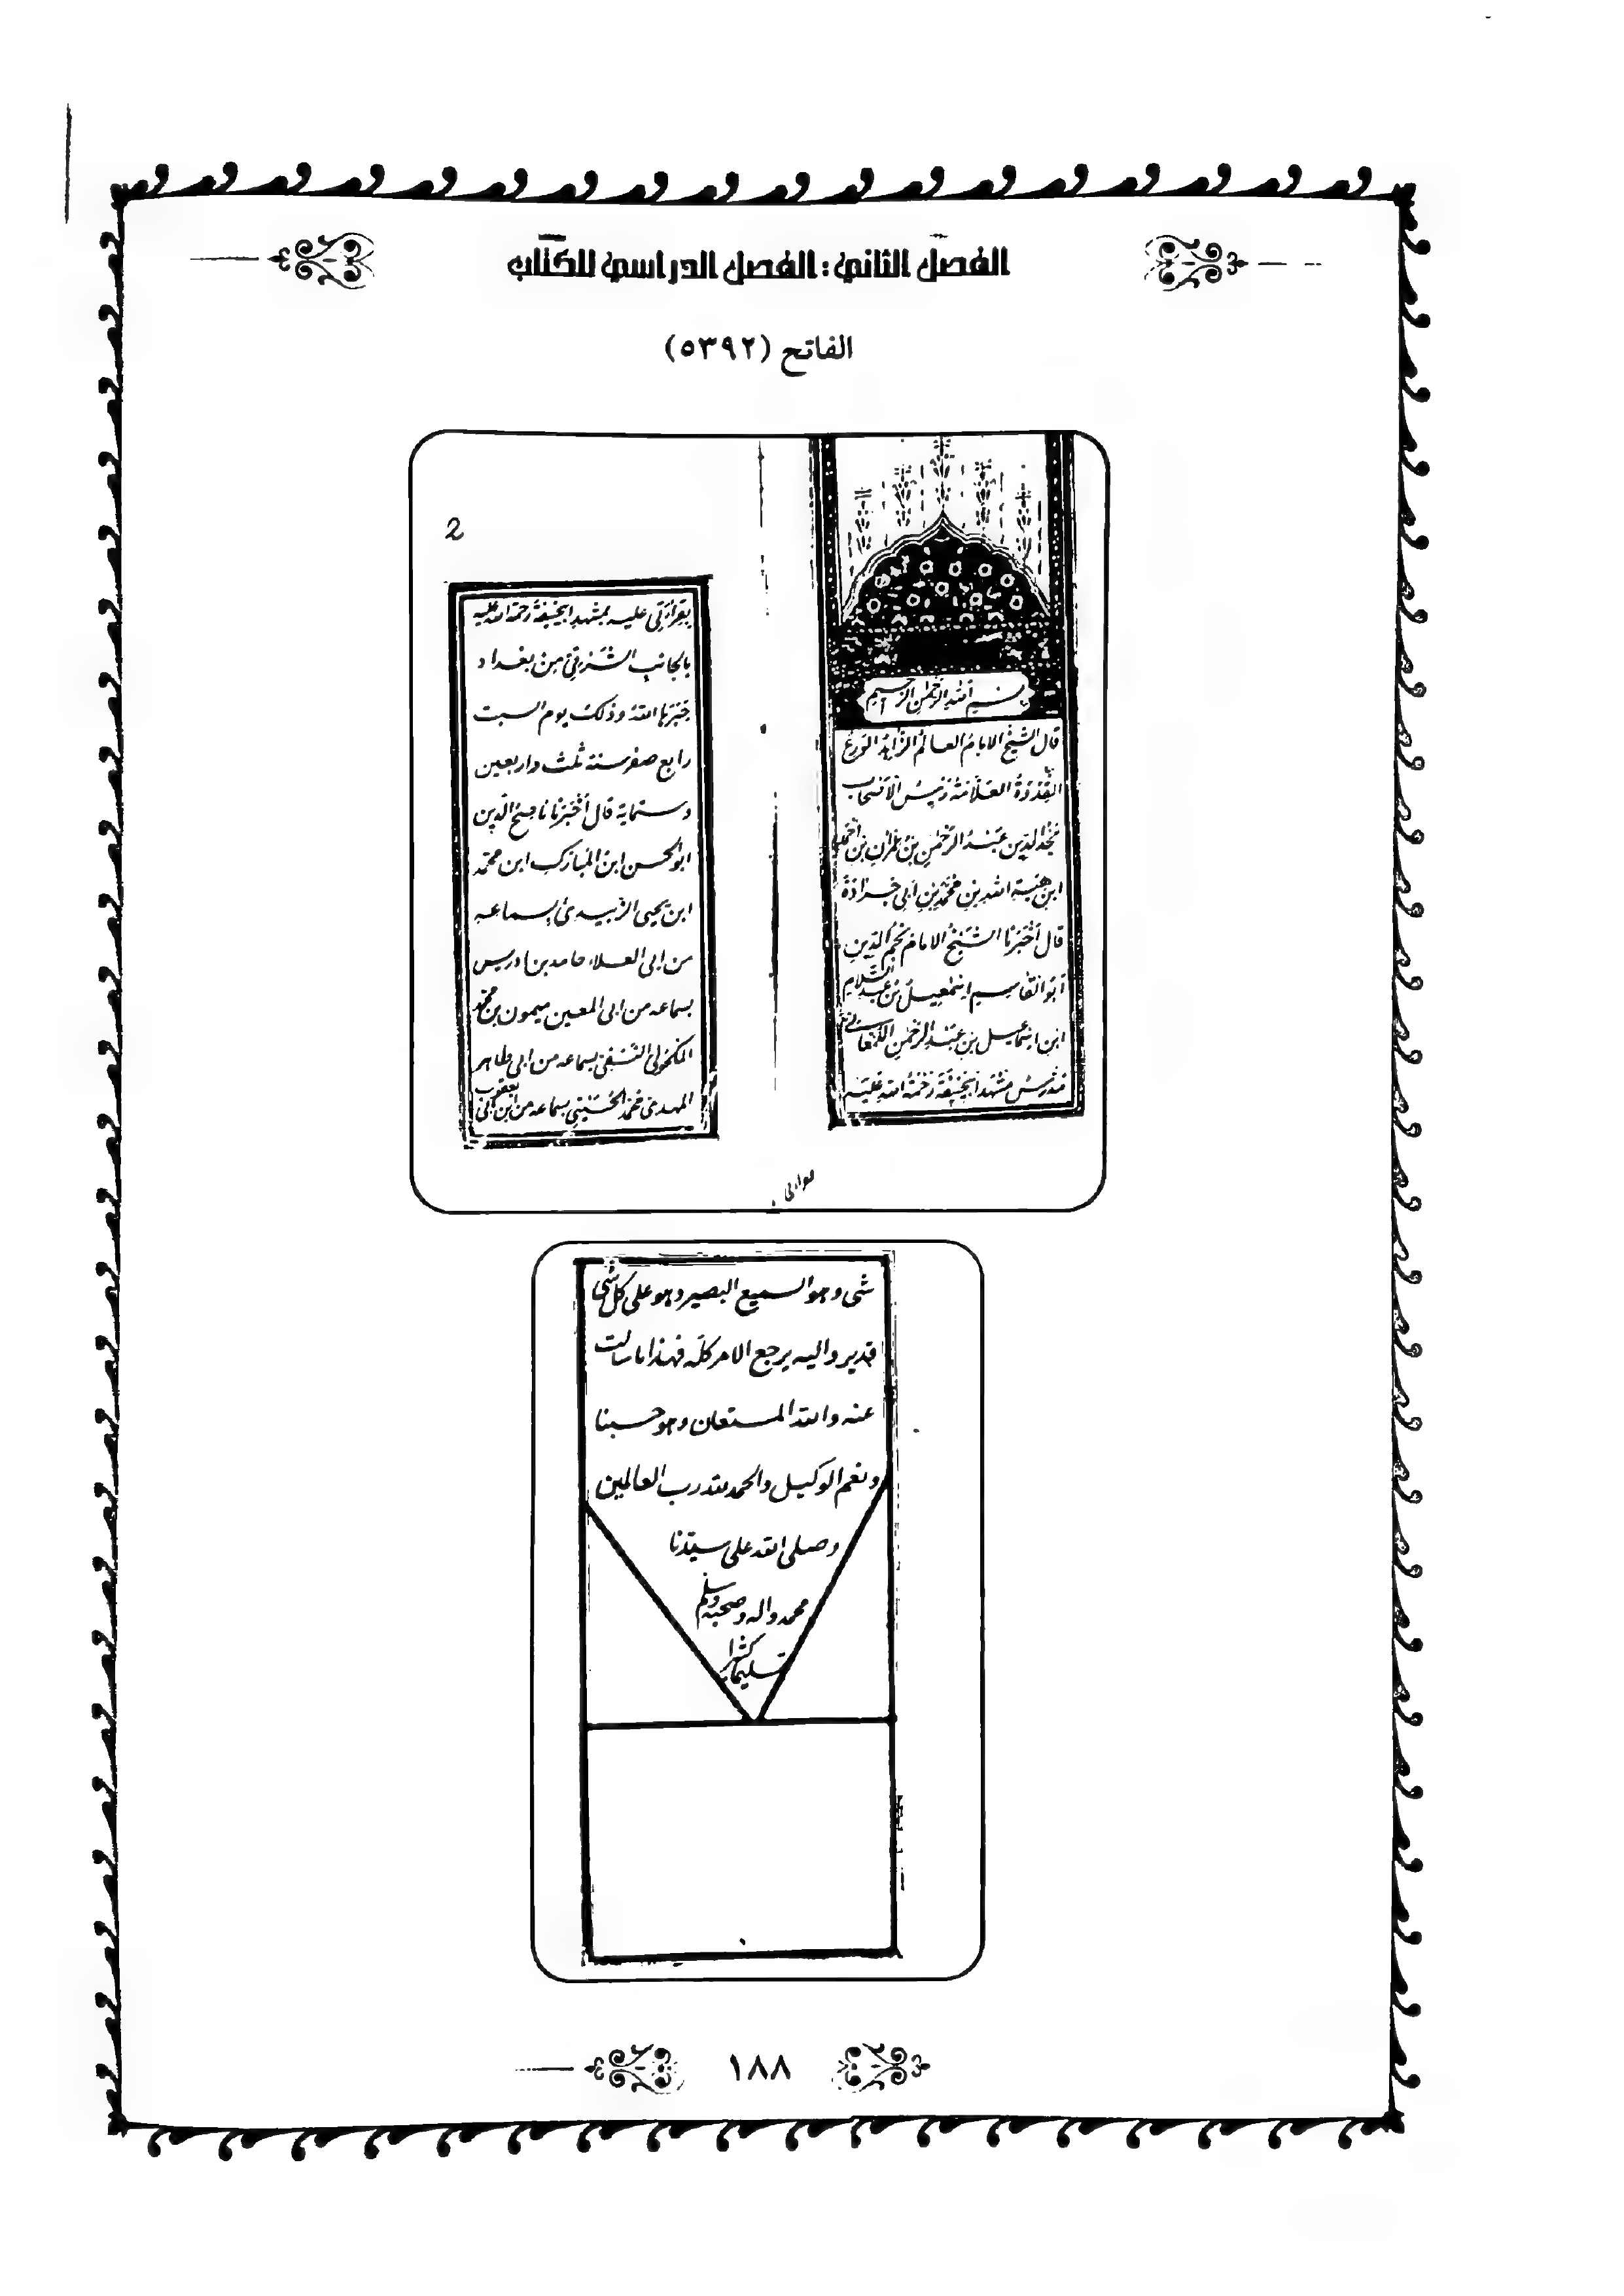 الفصل الثاني : الفصل الدراسي للكتاب
الفاتح (٥٣٩٢)
بسم الله الرحمن الرحيم
قال الشيخ الامام العالم الزاهد الورع
القدوة العلامة رئيس الاصحاب
مجد الدين عبد الرحمن بن عمر بن احمد
ابن هبة الله بن محمد بن ابى جرادة
قال أخبرنا الشيخ الامام نجم الدين
أبو القاسم اسمعيل بن عبد السلام
ابن اسماعيل بن عبد الرحمن اللمغانى
مدرس مشهد ابيحنيفة رحمة الله عليه
بقراءتى
2
بقراءتى عليه بمشهد ابيحنيفة رحمة الله عليه
بالجانب الشرقي من بغداد
جبرها الله وذلك يوم السبت
رابع صفر سنة ثلث واربعين
وستماية قال أخبرنا ناصح الدين
ابو الحسن ابن المبارك ابن محمد
ابن يحيى الزبيدى بسماعه
من ابى العلاء حامد بن ادريس
بسماعه من ابى المعين ميمون بن محمد
المكحولى النسفى بسماعه من ابى طاهر
المهدى محمد الحسينى بسماعه من ابن ابى يعقوب
شى وهو السميع البصير وهو على كل شى
قدير واليه يرجع الامر كله فهذا ما سالت
عنه والله المستعان وهو حسبنا
ونعم الوكيل والحمد لله رب العالمين
وصلى الله على سيدنا
محمد واله وصحبه وسلم
تسليما كثيرا
١٨٨